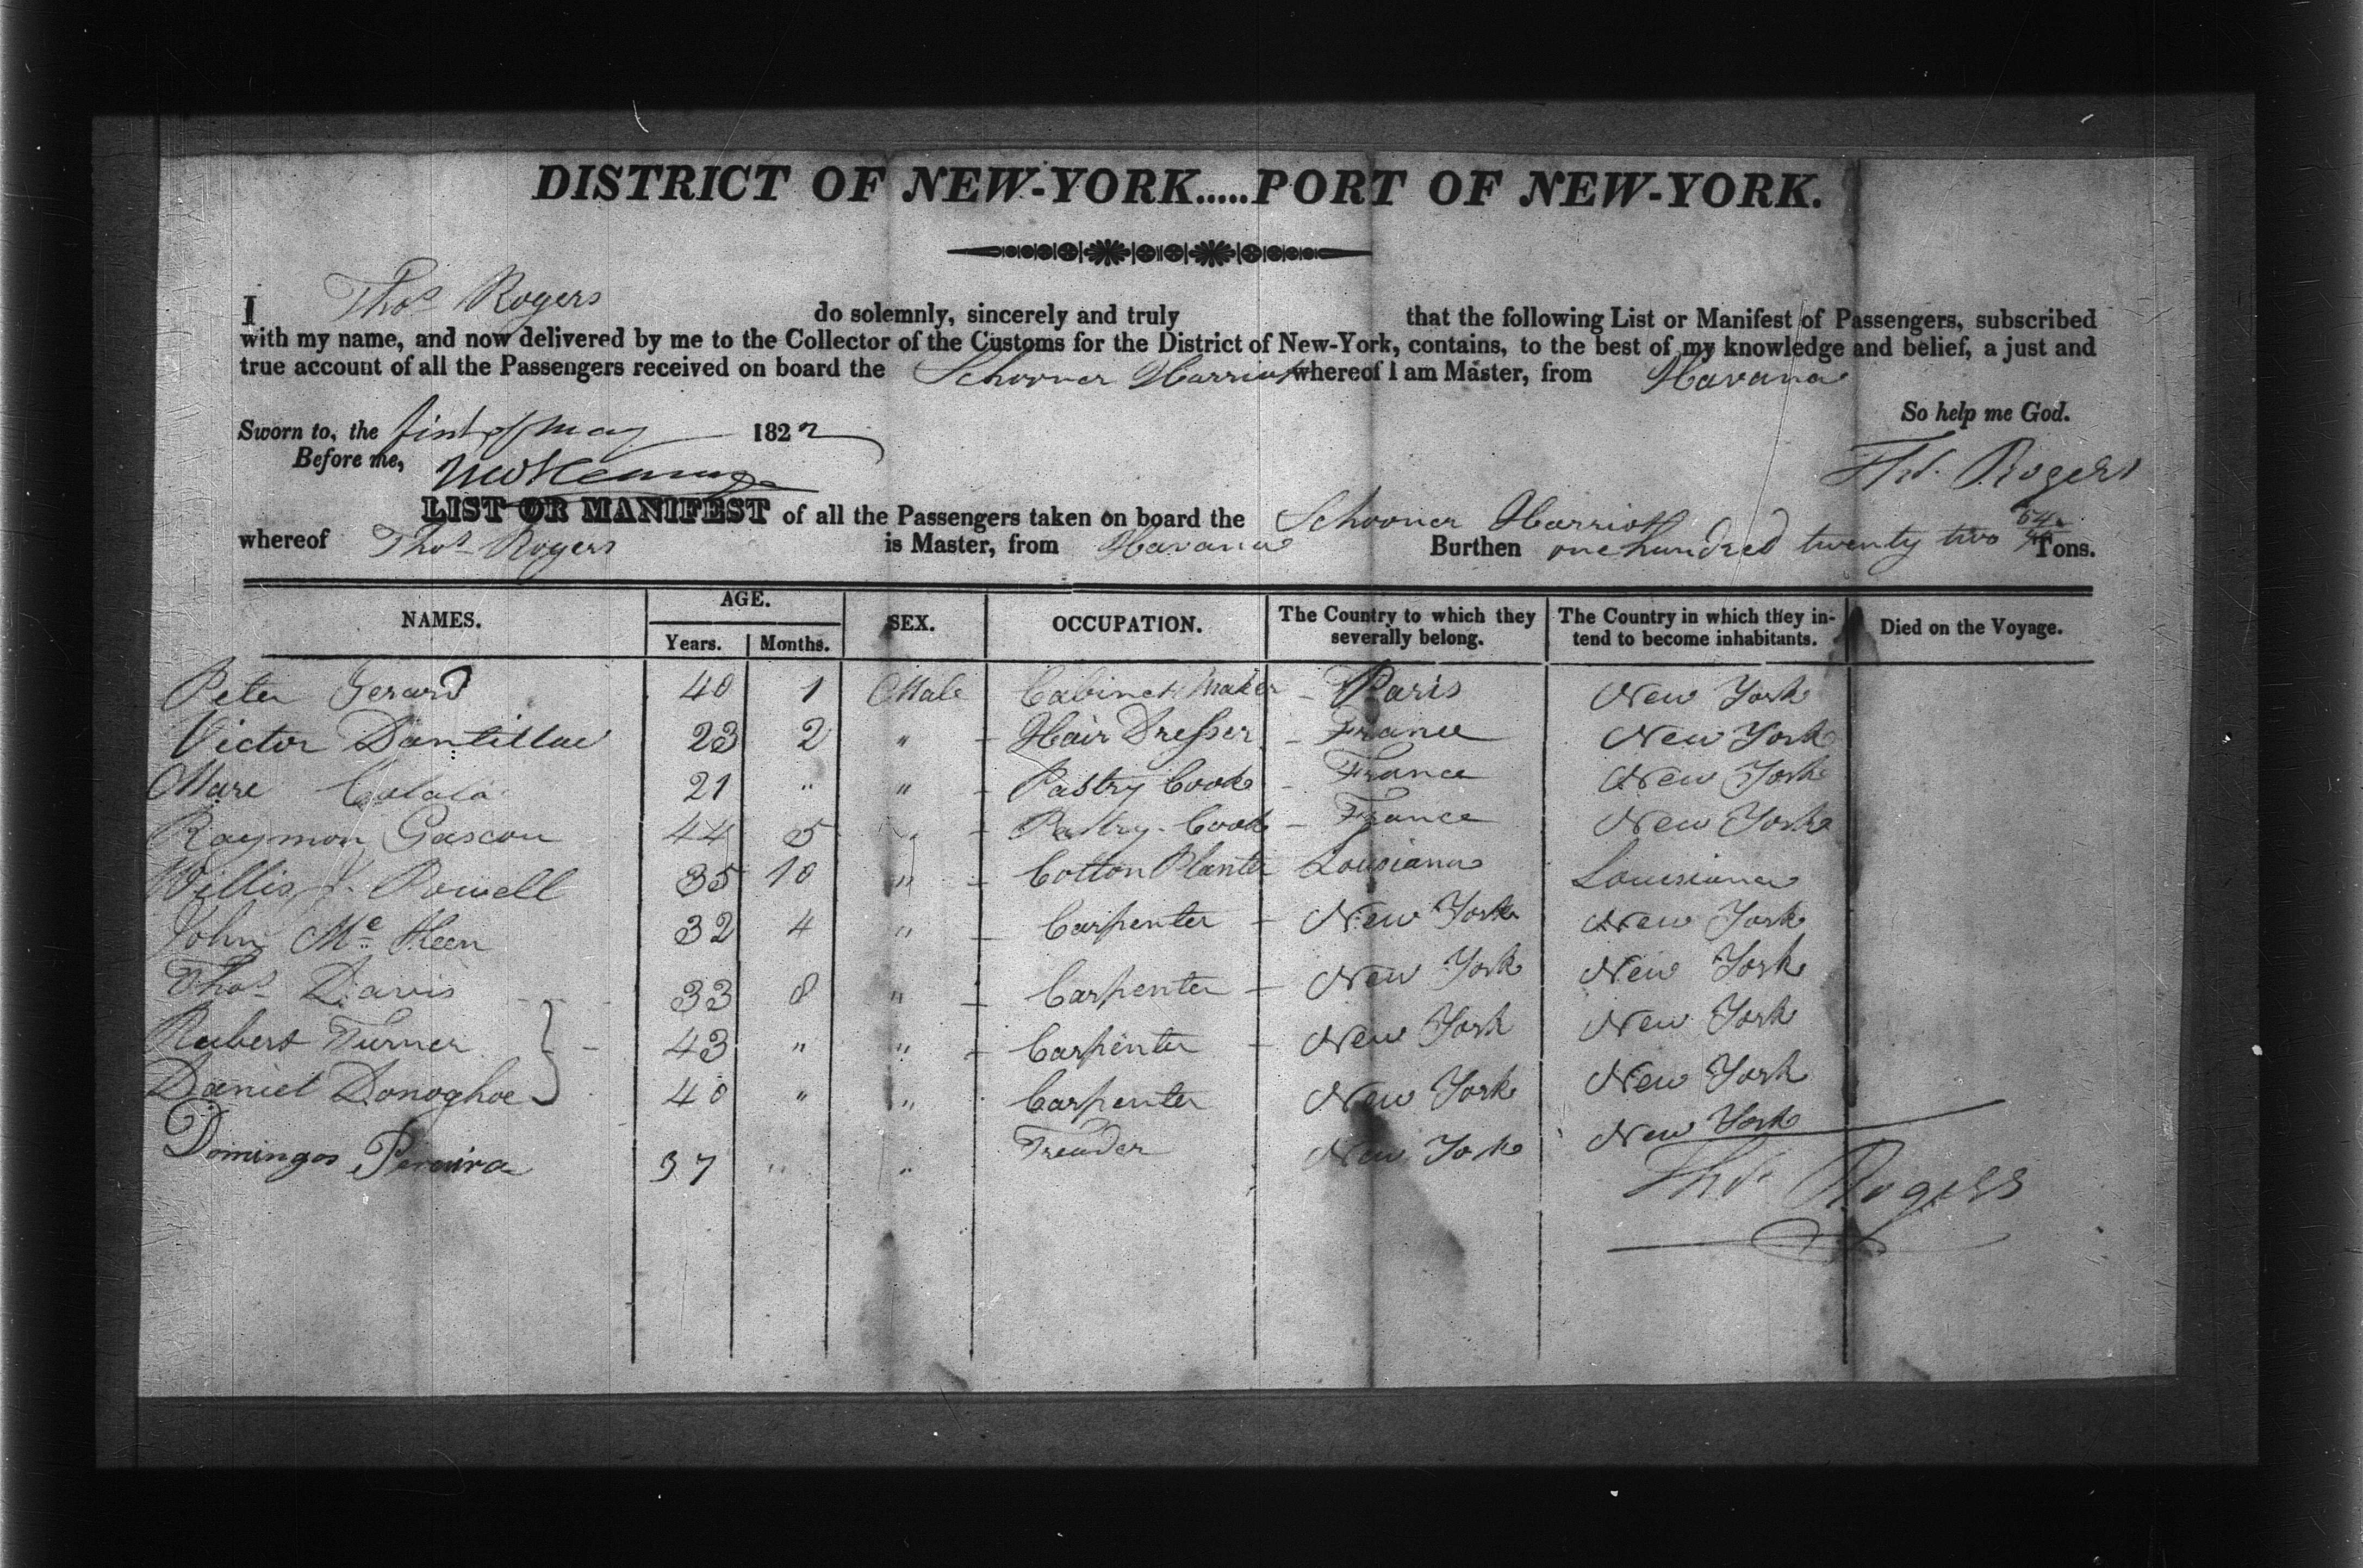 DISTRICT OF NEW-YORK.....PORT OF NEW-YORK.
I Thos Rogers do solemnly, sincerely and truly that the following List or Manifest of Passengers, subscribed
with my name, and now delivered by me to the Collector of the Customs for the District of New-York, contains, to the best of my knowledge and belief, a just and
true account of all the Passengers received on board the Schooner Harriott whereof I am Master, from Havana
So help me God.
Sworn to, the first of May 182
Before me,
Thos. Rogers
LIST OR MANIFEST of all the Passengers taken on board the Schooner Harriott
whereof Thos Rogers is Master, from Havana Burthen one hundred twenty two Tons.
NAMES. AGE. SEX. OCCUPATION. The Country to which they severally belong. The Country in which they intend to become inhabitants. Died on the Voyage.
Years. Months.
Peter Gerard 40 1 Male Cabinet Maker - Paris New York
Victor 23 2 " - Hair Dresser - France New York
21 " " - Pastry Cook - France New York
Raymon Gascon 44 5 " - Pastry Cook - France New York
Willis Powell 35 10 " - Cotton Planter Louisiana Louisiana
John Mc 32 4 " - Carpenter - New York New York
Thos Davis 33 8 " - Carpenter - New York New York
Robert Turner - 43 " " - Carpenter - New York New York
Daniel Donoghoe 40 " " Carpenter New York New York
Domingos Pereira 37 " " New York New York
Thos. Rogers